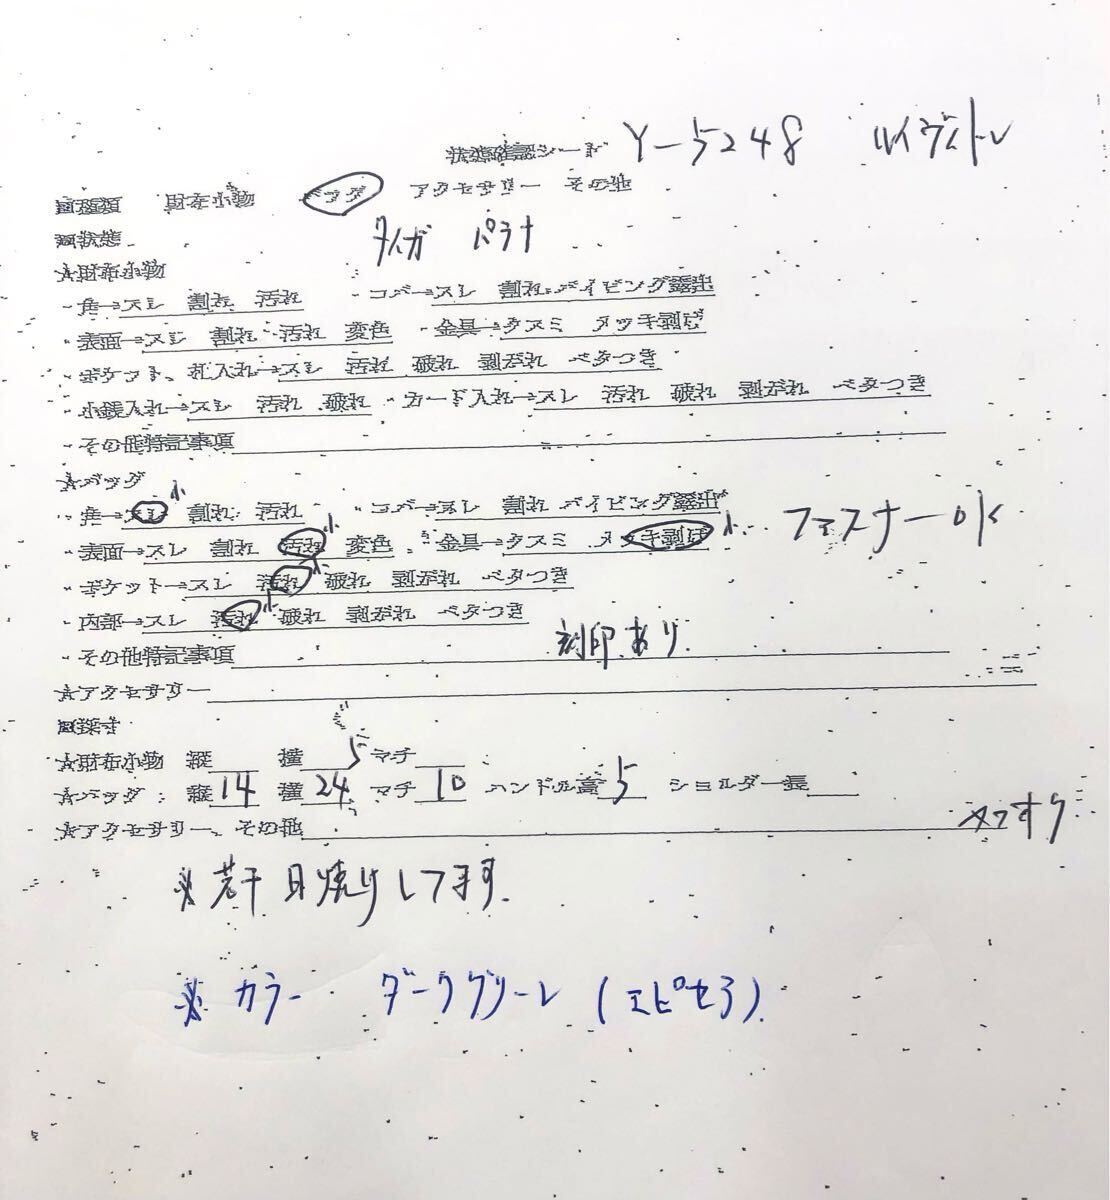 状態確認シート Y-5248 ルイヴィトン
□種類 財布小物 バッグ アクセサリー その他
□状態 タイガ パラナ
★財布小物
・角→スレ 割れ 汚れ ・コバ→スレ 割れ パイピング露出
・表面→スレ 割れ 汚れ 変色 ・金具→クスミ メッキ剥げ
・ポケット、札入れ→スレ 汚れ 破れ 剥がれ ベタつき
・小銭入れ→スレ 汚れ 破れ ・カード入れ→スレ 汚れ 破れ 剥がれ ベタつき
・その他特記事項
★バッグ
・角→スレ小 割れ 汚れ ・コバ→スレ 割れ パイピング露出
・表面→スレ 割れ 汚れ小 変色 ・金具→クスミ メッキ剥げ小 ファスナーOK
・ポケット→スレ 汚れ小 破れ 剥がれ ベタつき
・内部→スレ 汚れ小 破れ 剥がれ ベタつき
・その他特記事項 刻印あり
★アクセサリー
□採寸
★財布小物 縦 横 マチ
★バッグ 縦14 横24 マチ10 ハンドル高5 ショルダー長
★アクセサリー、その他
※若干日焼けしてます.
※カラー ダークグリーン(エピセア)